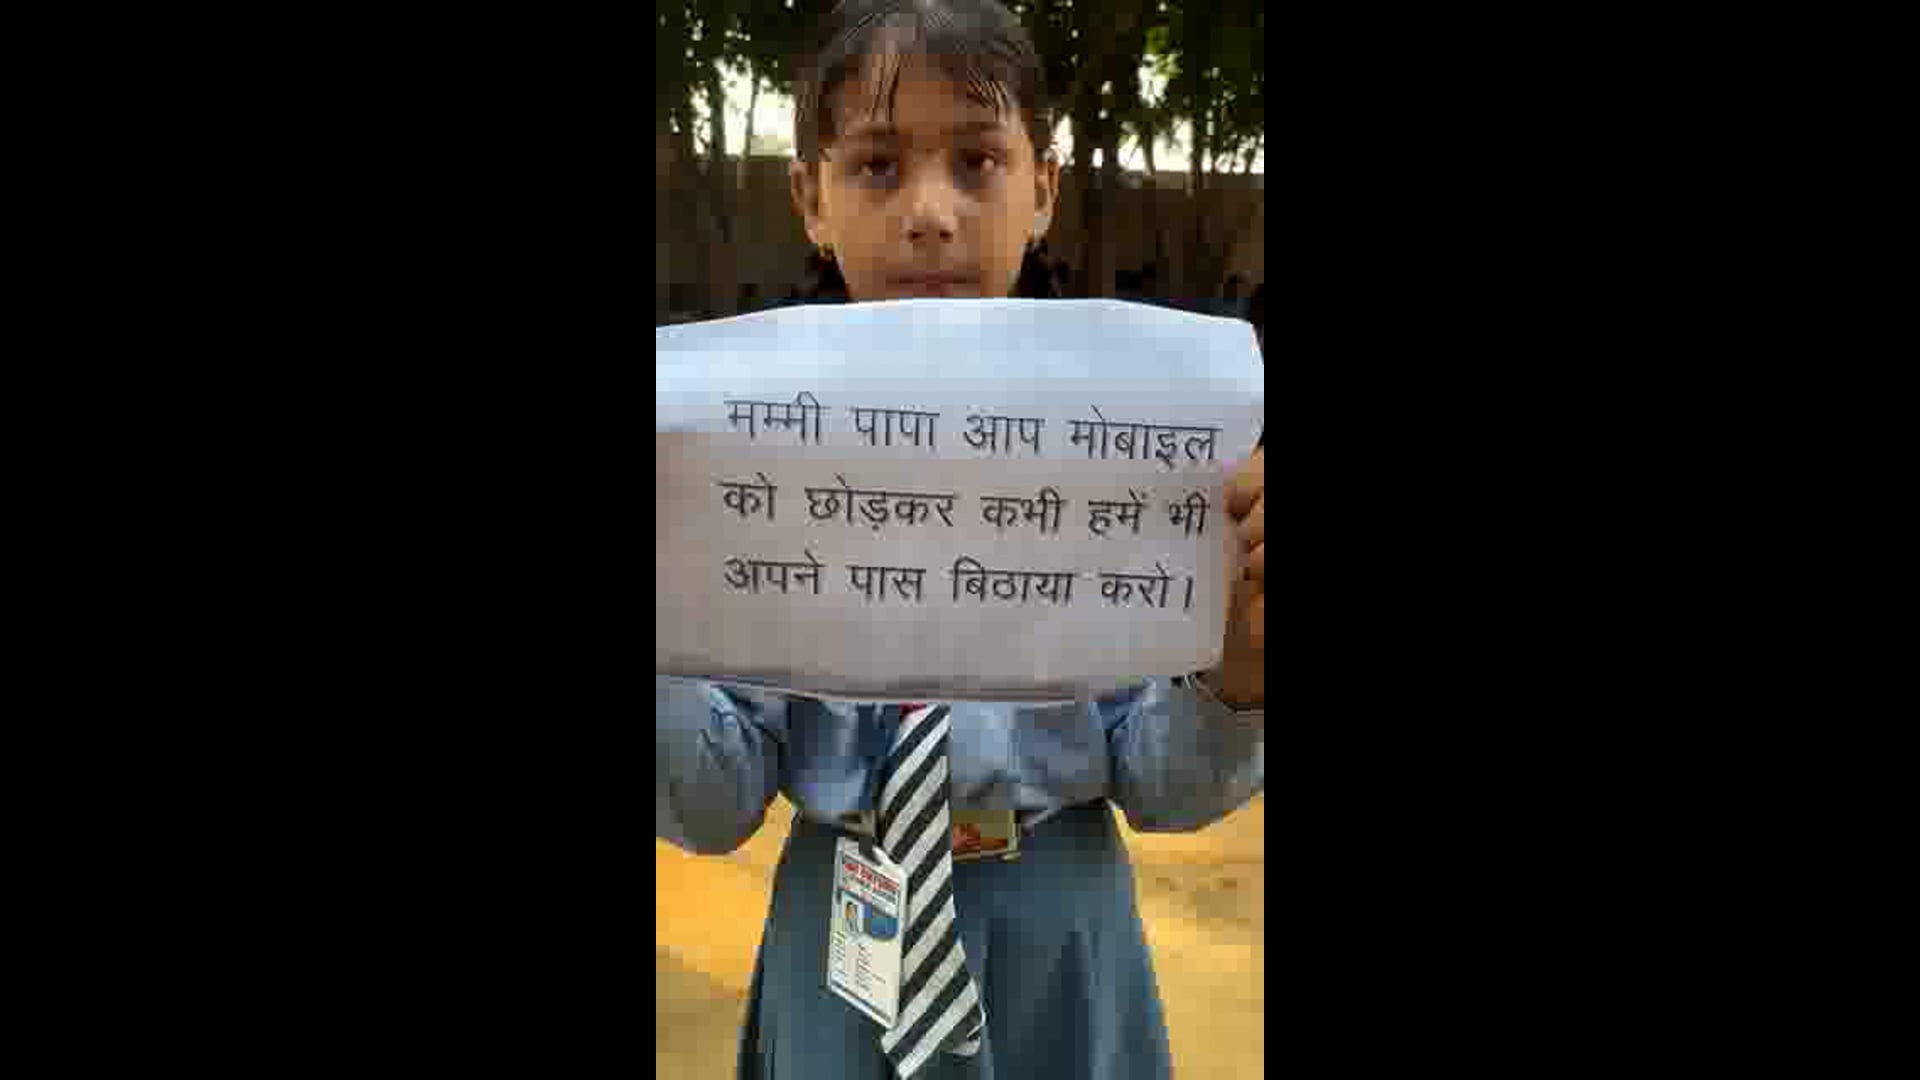 मम्मी पापा आप मोबाइल
को छोड़कर कभी हमें भी
अपने पास बिठाया करो।